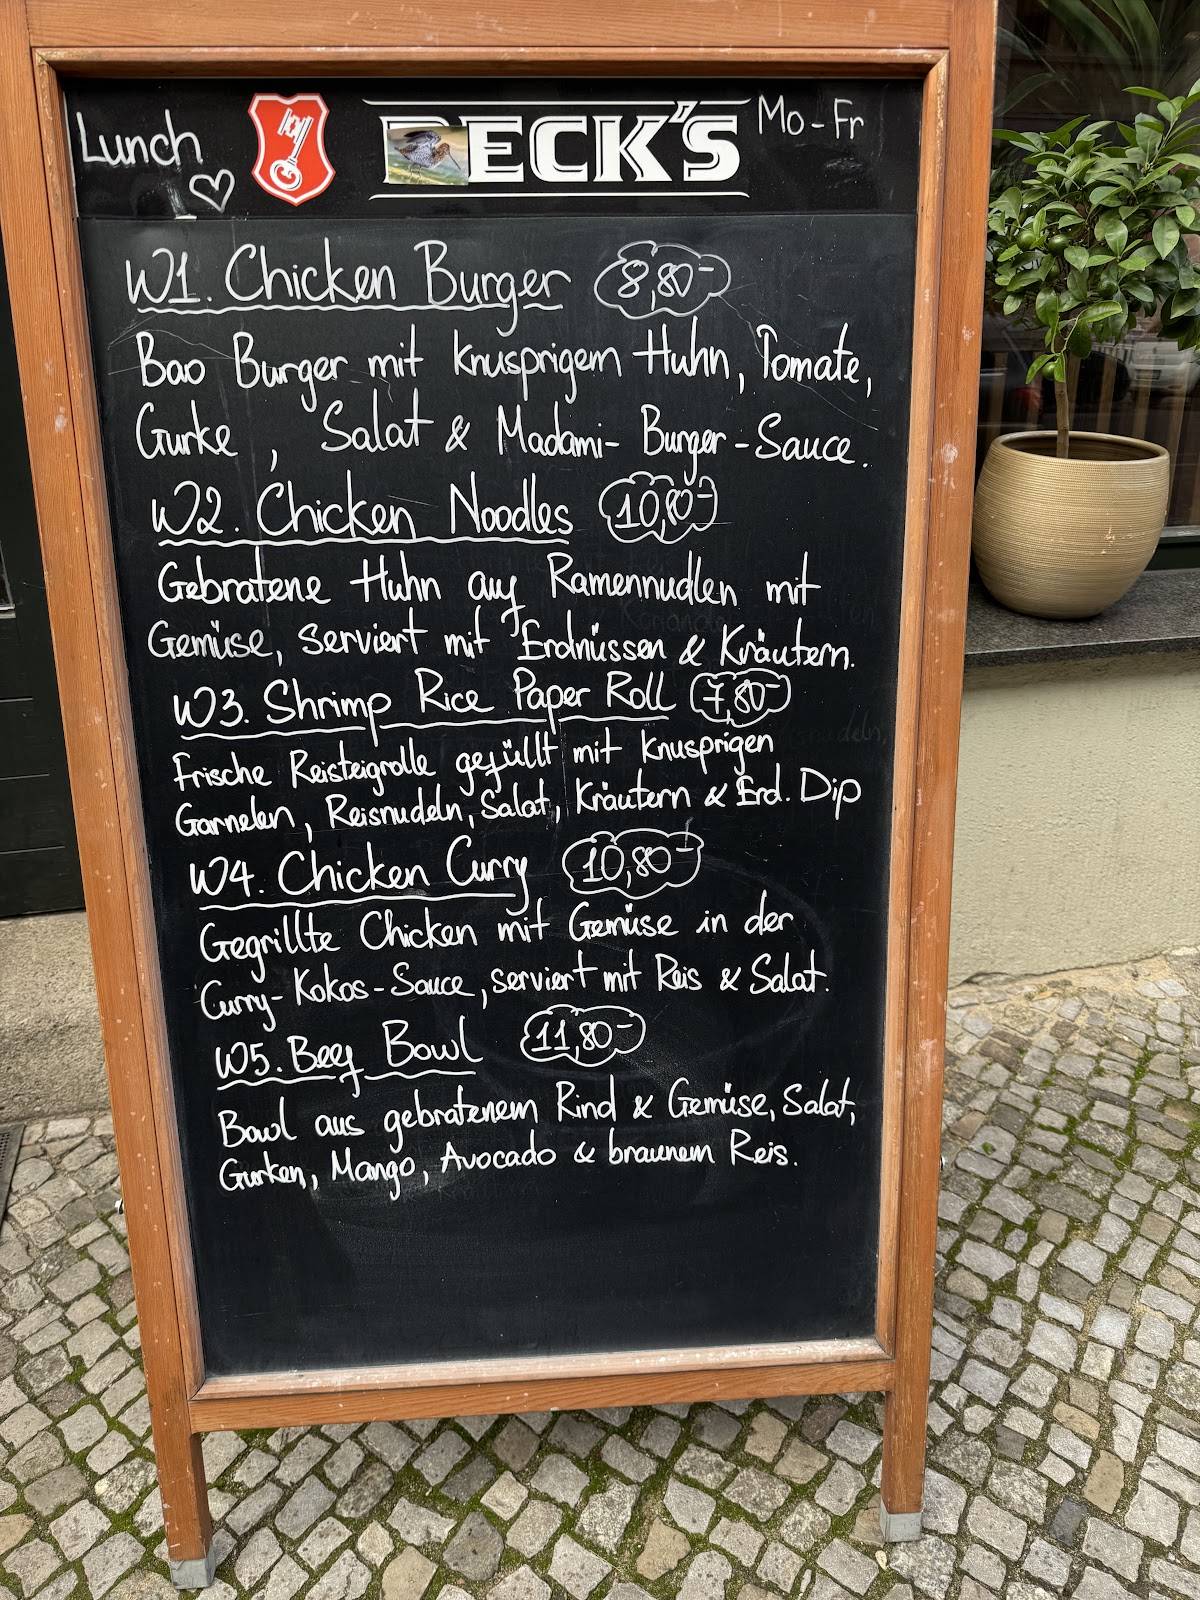 Lunch
ECK'S
Mo-Fr
W1. Chicken Burger 8,80-
Bao Burger mit knusprigem Huhn, Tomate,
Gurke, Salat & Madami-Burger-Sauce.
W2. Chicken Noodles 10,80-
Gebratene Huhn auf Ramennudlen mit
Gemüse, serviert mit Erdnüssen & Kräutern.
W3. Shrimp Rice Paper Roll 7,80-
Frische Reisteigrolle gefüllt mit knusprigen
Garnelen, Reisnudeln, Salat, Kräutern & Erd. Dip
W4. Chicken Curry 10,80-
Gegrillte Chicken mit Gemüse in der
Curry-Kokos-Sauce, serviert mit Reis & Salat.
W5. Beef Bowl 11,80-
Bowl aus gebratenem Rind & Gemüse, Salat,
Gurken, Mango, Avocado & braunem Reis.